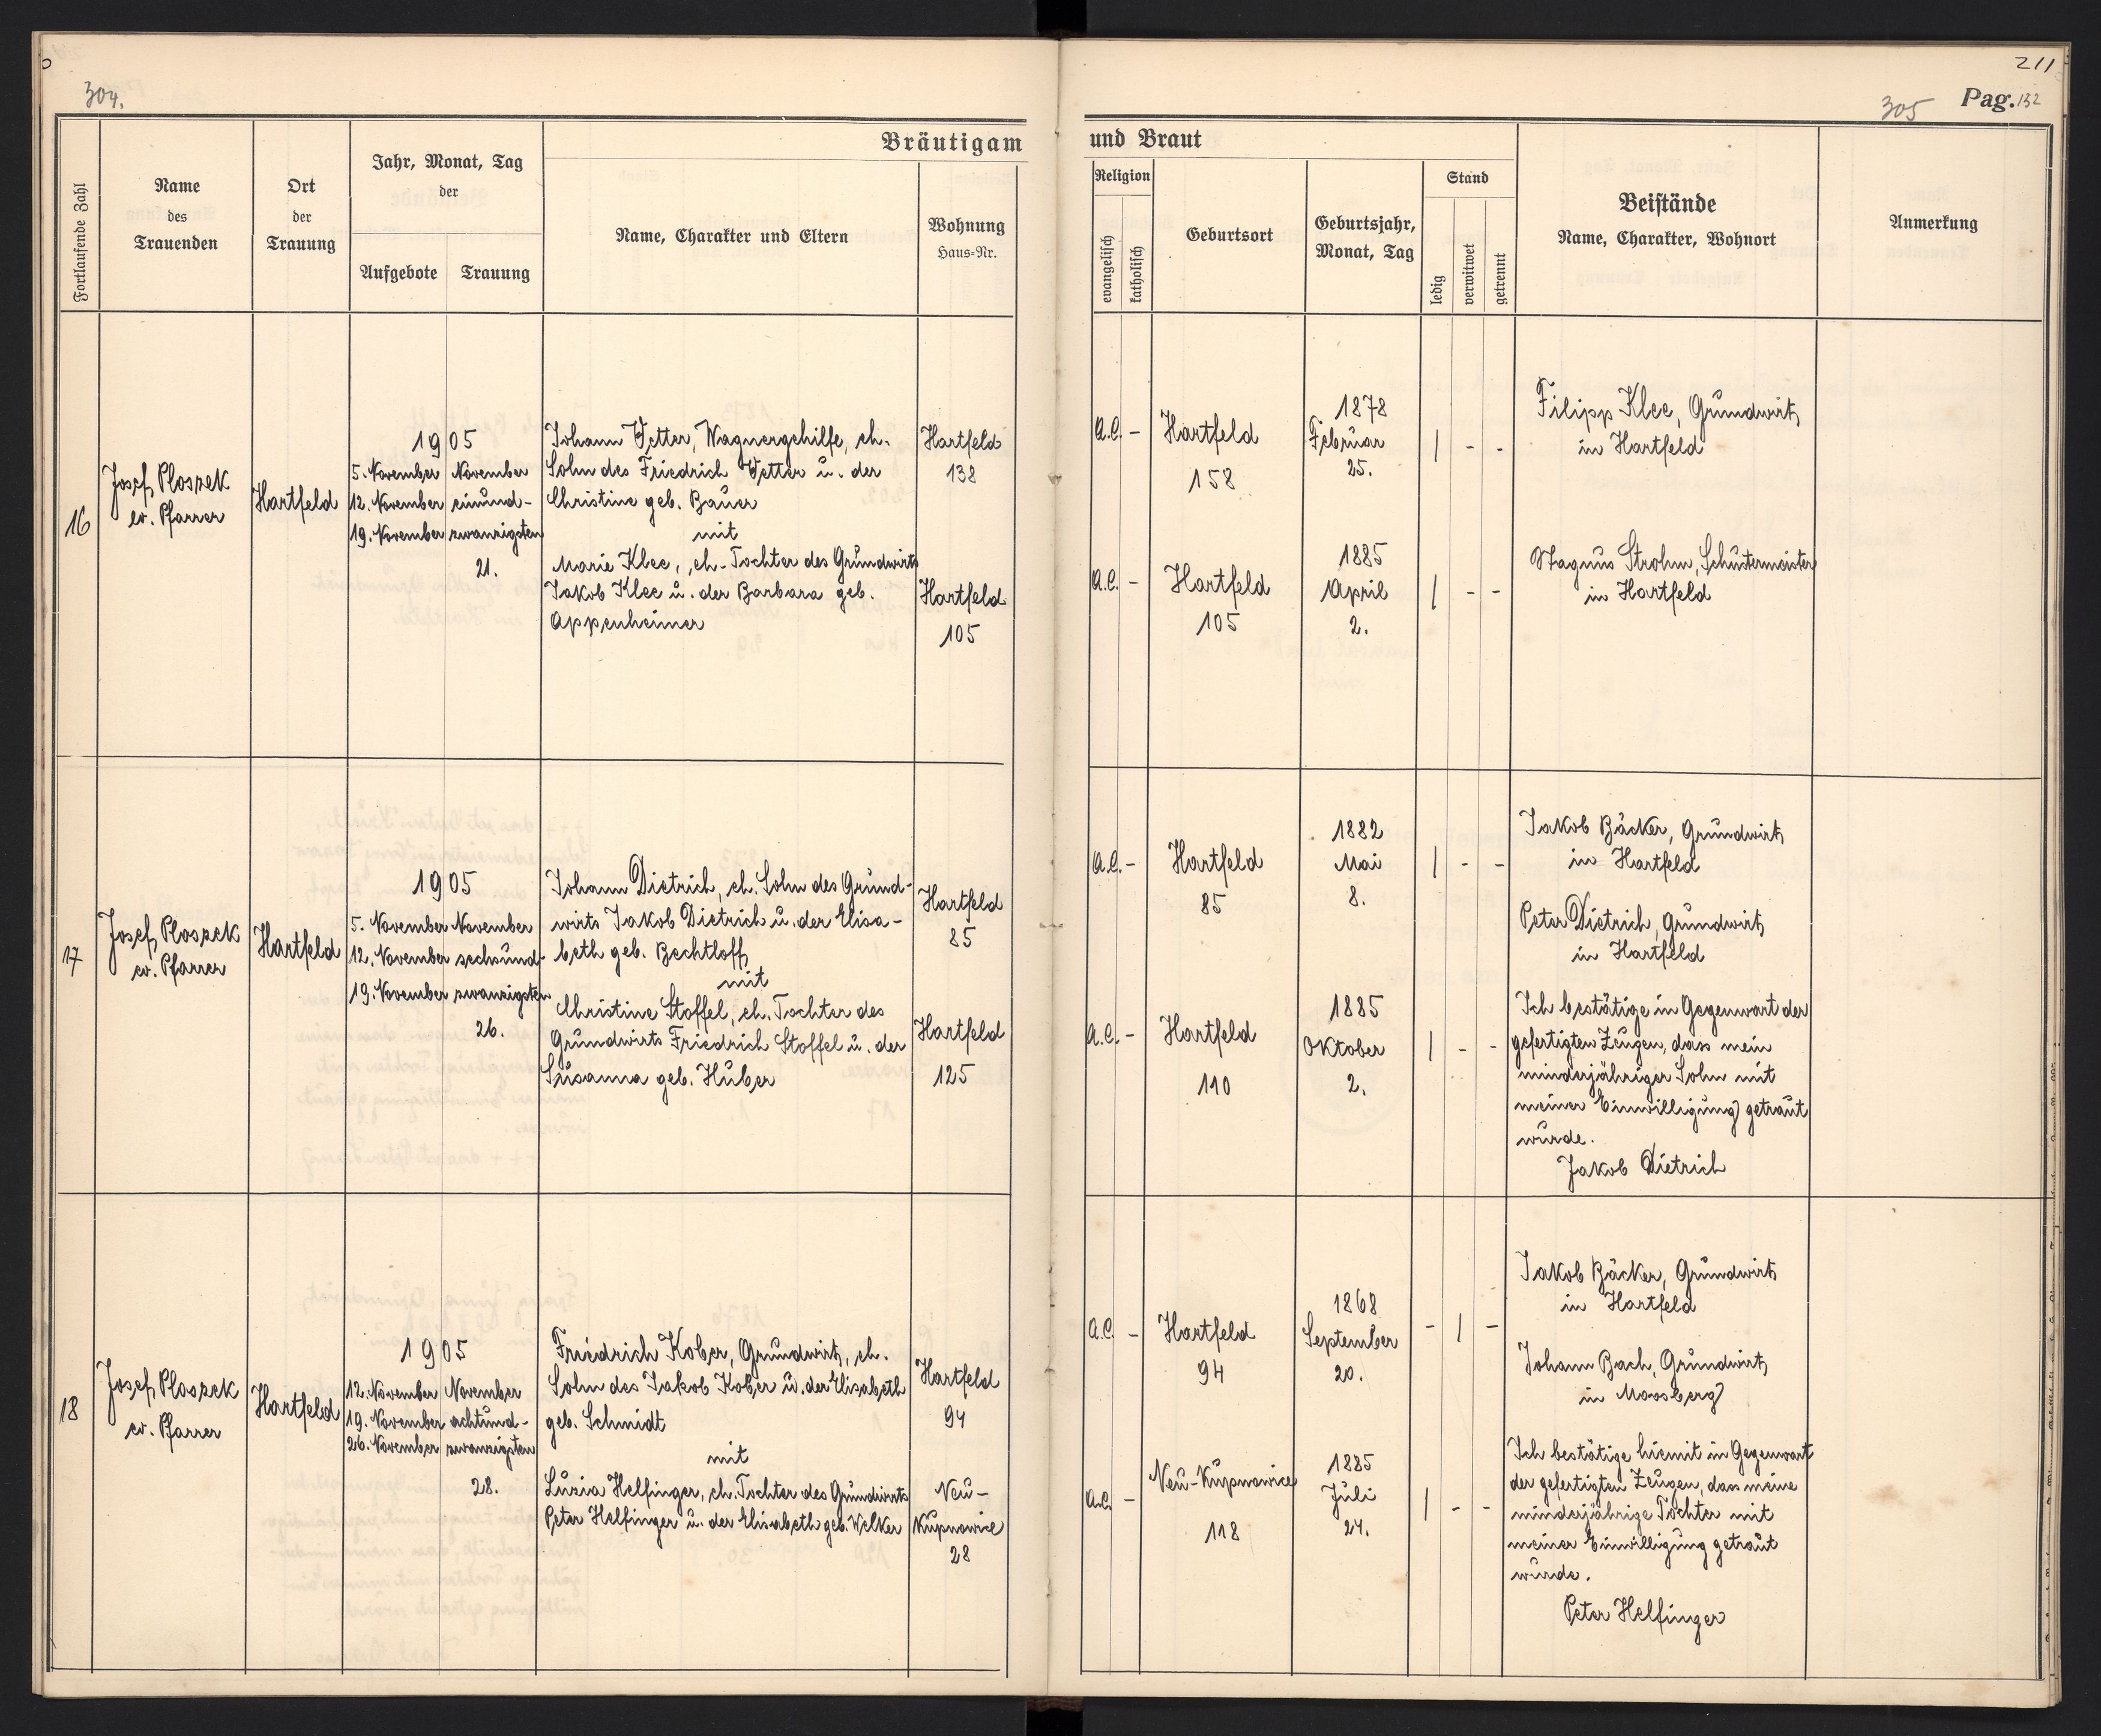 211
304.
305 Pag. 132
Bräutigam und Braut
Fortlaufende Zahl
Name des Trauenden
Ort der Trauung
Jahr, Monat, Tag der
Aufgebote
Trauung
Name, Charakter und Eltern
Wohnung Haus=Nr.
Religion
evangelisch
katholisch
Geburtsort
Geburtsjahr, Monat, Tag
Stand
ledig
verwitwet
getrennt
Beistände
Name, Charakter, Wohnort
Anmerkung
16
Josef Ploszek
ev. Pfarrer
Hartfeld
1905
5. November
12. November
19. November
November
einund-
zwanzigsten
21.
Johann Vetter, Wagnergehilfe, eh.
Sohn des Friedrich Vetter u. der
Christine geb. Bauer
mit
Marie Klee, eh. Tochter des Grundwirts
Jakob Klee u. der Barbara geb.
Appenheimer
Hartfeld
138
Hartfeld
105
A.C. -
Hartfeld
158
1878
Februar
25.
| - -
A.C. -
Hartfeld
105
1885
April
2.
| - -
Filipp Klee, Grundwirt,
in Hartfeld
Magnus Strohm, Schustermeister
in Hartfeld
17
Josef Ploszek
ev. Pfarrer
Hartfeld
1905
5. November
12. November
19. November
November
sechsund-
zwanzigsten
26.
Johann Dietrich, eh. Sohn des Grund-
wirts Jakob Dietrich u. der Elisa-
beth geb. Bechtloff
mit
Christine Stoffel, eh. Tochter des
Grundwirts Friedrich Stoffel u. der
Susanna geb. Huber
Hartfeld
85
Hartfeld
125
A.C. -
Hartfeld
85
1882
Mai
8.
| - -
A.C. -
Hartfeld
110
1885
Oktober
2.
| - -
Jakob Bäcker, Grundwirt,
in Hartfeld
Peter Dietrich, Grundwirt,
in Hartfeld
Ich bestätige in Gegenwart der
gefertigten Zeugen, dass mein
minderjähriger Sohn mit
meiner Einwilligung getraut
wurde.
Jakob Dietrich
18
Josef Ploszek
ev. Pfarrer
Hartfeld
1905
12. November
19. November
26. November
November
achtund-
zwanzigsten
28.
Friedrich Kober, Grundwirt, eh.
Sohn des Jakob Kober u. der Elisabeth
geb. Schmidt
mit
Luzia Helfinger, eh. Tochter des Grundwirts
Peter Helfinger u. der Elisabeth geb. Welker
Hartfeld
94
Neu-
Kupnowice
28
A.C. -
Hartfeld
94
1868
September
20.
- | -
A.C. -
Neu-Kupnowice
118
1885
Juli
24.
| - -
Jakob Bäcker, Grundwirt,
in Hartfeld
Johann Bach, Grundwirt,
in Moosberg
Ich bestätige hiemit in Gegenwart
der gefertigten Zeugen, dass meine
minderjährige Tochter mit
meiner Einwilligung getraut
wurde.
Peter Helfinger